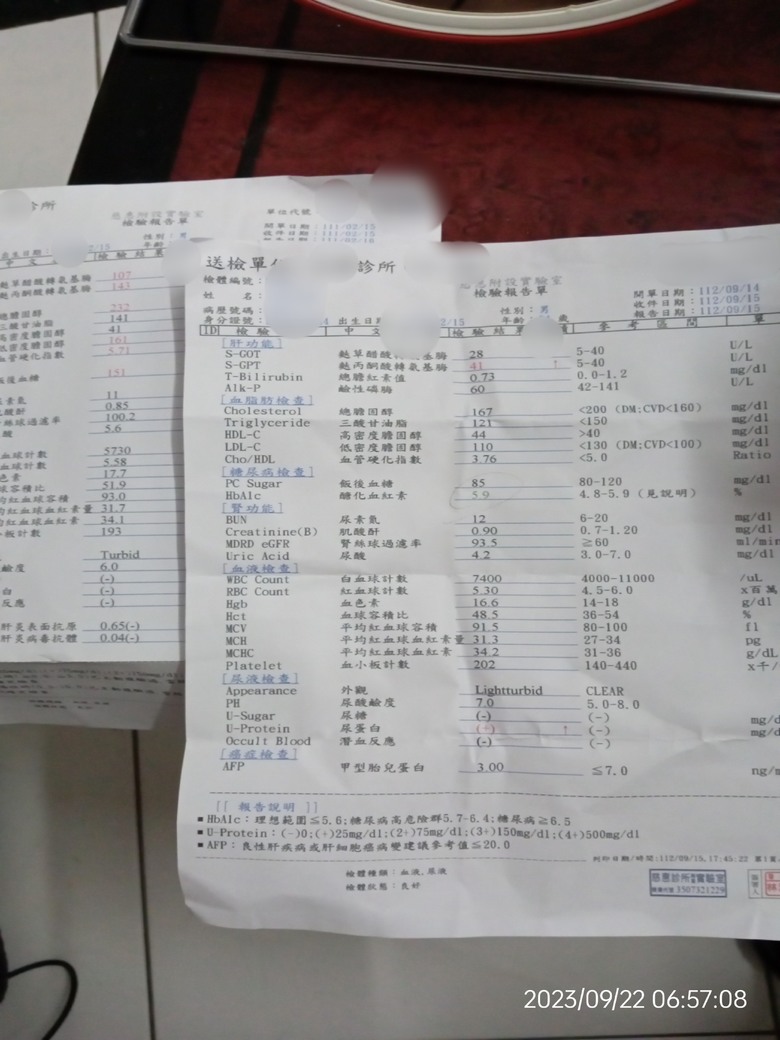 診所
慈惠附設實驗室
檢驗報告單
單位代號
開單日期：111/02/15
收件日期：111/02/15
性別：男
年齡
出生日期：
2/15
中 文
檢驗結果
麩草醋酸轉氨基酶 107
麩丙酮酸轉氨基酶 143
總膽固醇 232
三酸甘油脂 141
高密度膽固醇 41
低密度膽固醇 161
血管硬化指數 5.71
飯後血糖 151
尿素氮 11
肌酸酐 0.85
腎絲球過濾率 100.2
尿酸 5.6
白血球計數 5730
紅血球計數 5.58
血色素 17.7
血球容積比 51.9
平均紅血球容積 93.0
平均紅血球血紅素量 31.7
平均紅血球血紅素 34.1
血小板計數 193
Turbid
酸鹼度 6.0
(-)
蛋白 (-)
反應 (-)
肝炎表面抗原 0.65(-)
肝炎病毒抗體 0.04(-)
送檢單位
診所
慈惠附設實驗室
檢驗報告單
檢體編號：
姓 名：
病歷號碼：
身分證號：
4 出生日期
2/15
性別：男
年齡
歲
開單日期：112/09/14
收件日期：112/09/15
報告日期：112/09/15
ID 檢 驗 中 文 檢 驗 結 果 參 考 區 間 單
[肝功能]
S-GOT 麩草醋酸轉氨基酶 28 5-40 U/L
S-GPT 麩丙酮酸轉氨基酶 41 ↑ 5-40 U/L
T-Bilirubin 總膽紅素值 0.73 0.0-1.2 mg/dl
Alk-P 鹼性磷酶 60 42-141 U/L
[血脂肪檢查]
Cholesterol 總膽固醇 167 <200 (DM;CVD<160) mg/dl
Triglyceride 三酸甘油脂 121 <150 mg/dl
HDL-C 高密度膽固醇 44 >40 mg/dl
LDL-C 低密度膽固醇 110 <130 (DM;CVD<100) mg/dl
Cho/HDL 血管硬化指數 3.76 <5.0 Ratio
[糖尿病檢查]
PC Sugar 飯後血糖 85 80-120 mg/dl
HbA1c 醣化血紅素 5.9 4.8-5.9 (見說明) %
[腎功能]
BUN 尿素氮 12 6-20 mg/dl
Creatinine(B) 肌酸酐 0.90 0.7-1.20 mg/dl
MDRD eGFR 腎絲球過濾率 93.5 ≧60 ml/min
Uric Acid 尿酸 4.2 3.0-7.0 mg/dl
[血液檢查]
WBC Count 白血球計數 7400 4000-11000 /uL
RBC Count 紅血球計數 5.30 4.5-6.0 x百萬
Hgb 血色素 16.6 14-18 g/dl
Hct 血球容積比 48.5 36-54 %
MCV 平均紅血球容積 91.5 80-100 fl
MCH 平均紅血球血紅素量 31.3 27-34 pg
MCHC 平均紅血球血紅素 34.2 31-36 g/dL
Platelet 血小板計數 202 140-440 x千/
[尿液檢查]
Appearance 外觀 Lightturbid CLEAR
PH 尿酸鹼度 7.0 5.0-8.0
U-Sugar 尿糖 (-) (-) mg/d
U-Protein 尿蛋白 (+) ↑ (-) mg/d
Occult Blood 潛血反應 (-) (-)
[癌症檢查]
AFP 甲型胎兒蛋白 3.00 ≦7.0 ng/m
[[ 報告說明 ]]
■HbA1c：理想範圍≦5.6;糖尿病高危險群5.7-6.4;糖尿病≧6.5
■U-Protein：(-)0;(+)25mg/dl;(2+)75mg/dl;(3+)150mg/dl;(4+)500mg/dl
■AFP：良性肝疾病或肝細胞癌病變建議參考值≦20.0
列印日期/時間:112/09/15,17:45:22 第1頁
檢體種類：血液,尿液
檢體狀態：良好
慈惠診所附設實驗室
3507321229
2023/09/22 06:57:08